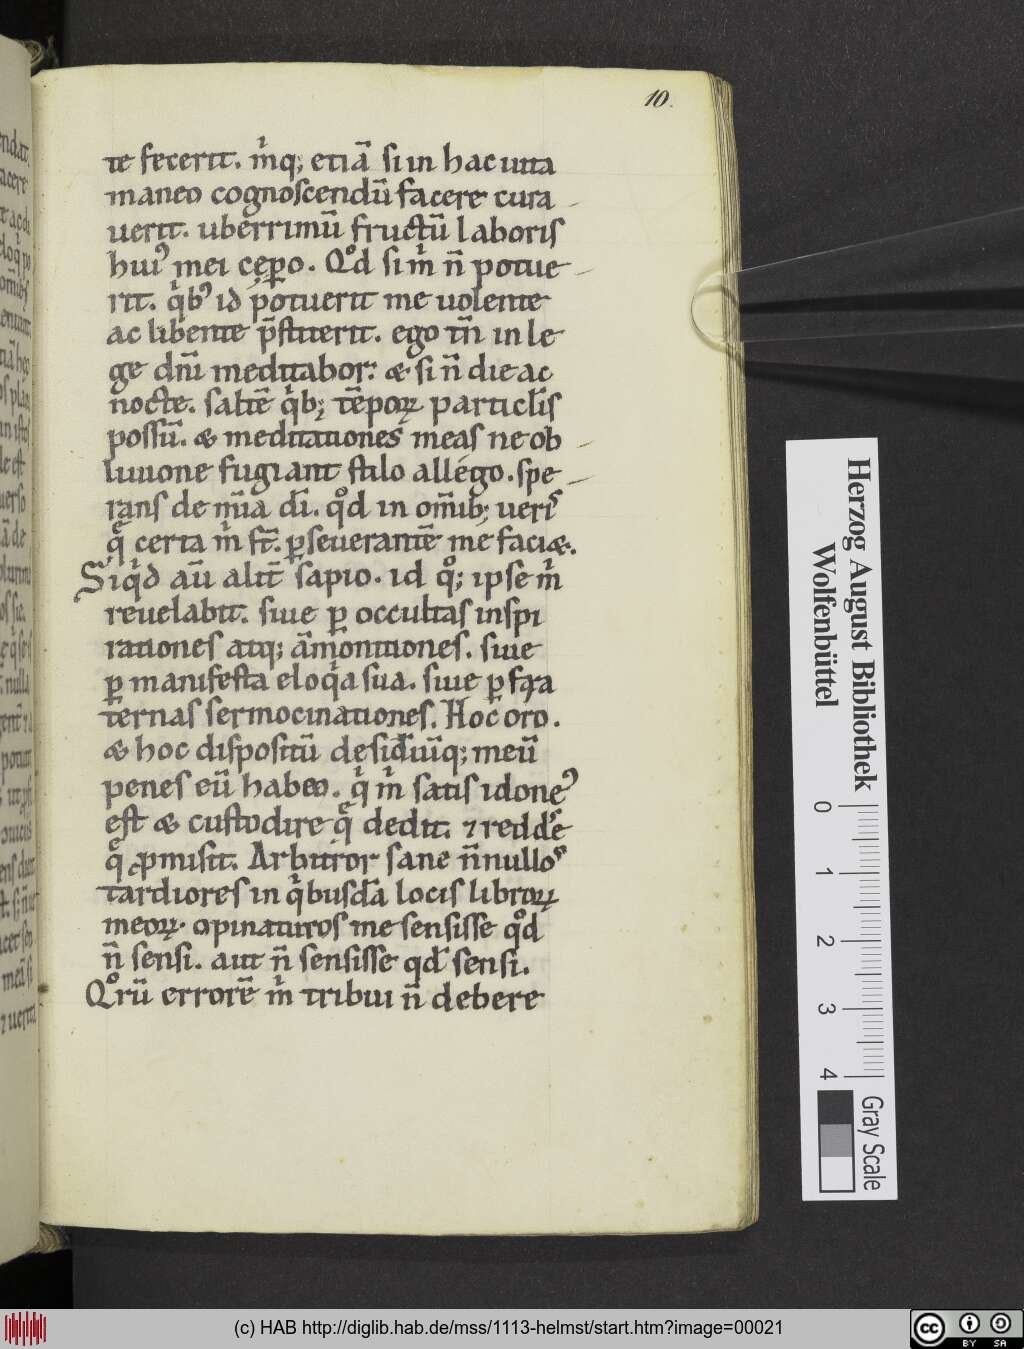 10.
te fecerit. m̍q; etiā si in hac uita
maneo cognoscendū facere cura
uerit. uberrimū fructū laboris
hui᾽ mei cępo. Qͦd si m̍ n̄ potue
rit. q̍b᾽ id potuerit me uolente
ac libente p̄stiterit. ego tn̄ in le
ge dn̄i meditabor: & si n̄ die ac
nocte. saltē q̍b; tēpoꝝ particl̄is
possū. & meditationes meas ne ob
liuione fugiant stilo alligo. spe
rans de mīa dī. qͦd in om̄ib; ueris
q̨ certa m̍ st̄. ꝑseuerantē me faci&.
Siqͥd aū alit̄ sapio. id qͦ; ipse m̍
reuelabit. siue ꝑ occultas inspi
rationes atq; ām̄onitiones. siue
ꝑ manifesta eloq̍a sua. siue ꝑ fr̄a
ternas sermocinationes. Hoc oro.
& hoc dispositū desid̄iūq; meū
penes eū habeo. q̍ m̍ satis idone᾽
est & custodire q̨ dedit. ⁊ redd̄e
q̨ ꝓmisit. Arbitror sane n̄nullos
tardiores in q̍busdā locis libroꝝ
meoꝝ. opinaturos me sensisse qͦd
n̄ sensi. aut n̄ sensisse qd̄ sensi.
Qͦrū errorē m̍ tribui n̄ debere
Herzog August Bibliothek
Wolfenbüttel
0 1 2 3 4
Gray Scale
(c) HAB http://diglib.hab.de/mss/1113-helmst/start.htm?image=00021
cc BY SA